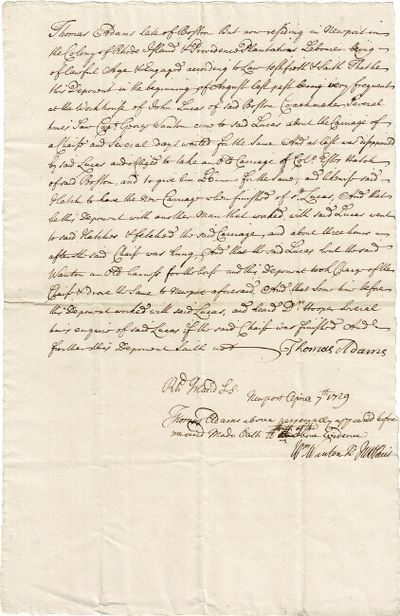 Thomas Adams late of Boston But now residing in Newport in
the Colony of Rhode Island & Providence Plantations Labourer being
of lawfull Age & Engaged according to Law testifieth & Saith That he
this Deponent in the beginning of August last past being very frequent
at the Workhouse of John Lucas of said Boston Coachmaker Several
times Saw Capt. Wanton come to said Lucas about the Carriage of
a Chaise and Several Days waited for the Same And at last was disapointed
by said Lucas and obliged to take an Old Carriage of Colo. Estes Hatch
of said Boston, and to give him for the same, and said
Hatch to have the New Carriage when finished of sd. Lucas, And that
he this Deponent with another Man that worked with said Lucas went
to said Hatches & fetched the said Carriage, and about three hours
after the said Chais was hung, And that the said Lucas lent the said
Wanton an Old for the and this Deponent took Charge of the
Chaise & drove the Same to Newport aforesaid And that Some time before
this Deponent worked with said Lucas, and heard Dr. Hooper several
times enquire of said Lucas if the said Chaise was finished And
further this Deponent Saith not Thomas Adams
Newport April 7th 1729
Thomas Adams above personally appeared before
me and Made Oath to the truth of the above Evidence
Wm. Wanton